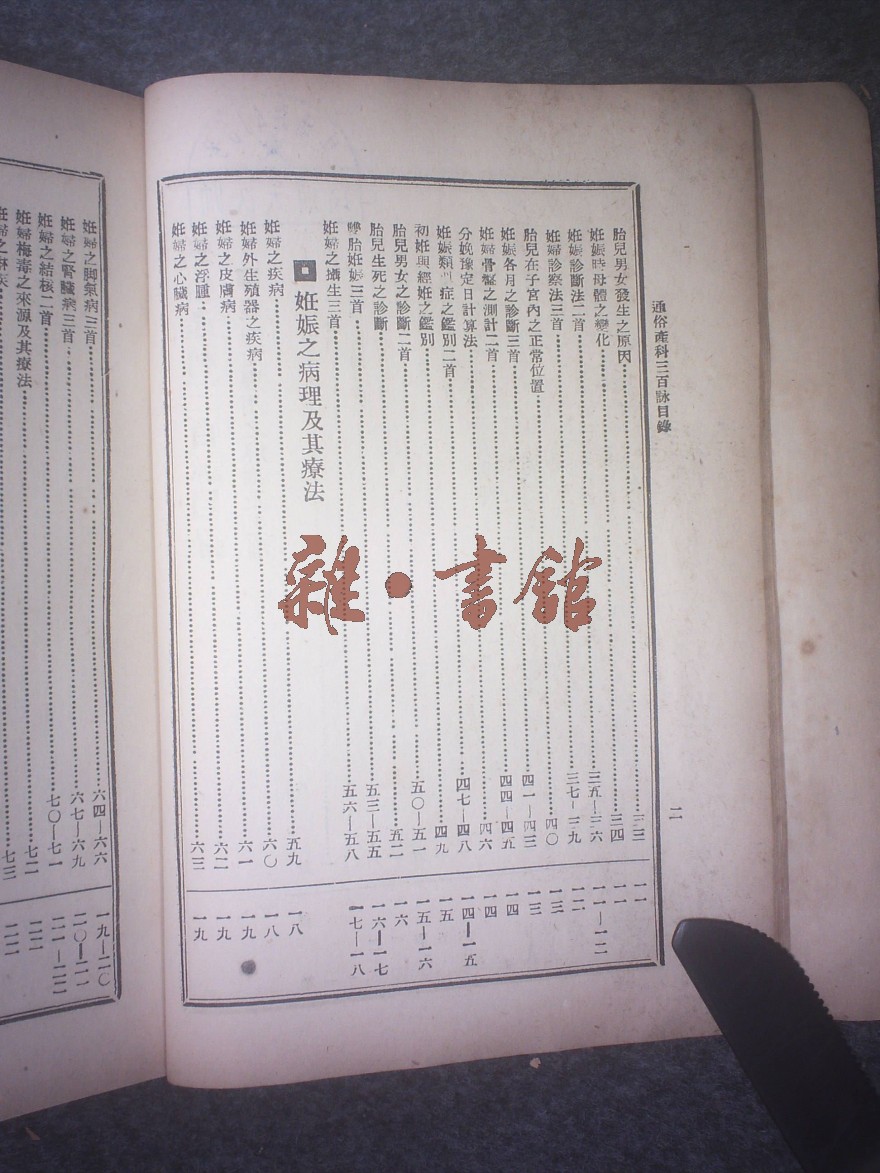 通俗產科三百詠目錄 二
胎兒男女發生之原因……三三 一一
妊娠時母體之變化……三四 一一
妊娠診斷法二首……三五—三六 一一—一二
妊婦診察法三首……三七—三九 一二
胎兒在子宮內之正常位置……四〇 一三
妊娠各月之診斷三首……四一—四三 一三
妊婦骨盤之測計二首……四四—四五 一四
分娩豫定日計算法……四六 一四
妊娠類似症之鑑別二首……四七—四八 一四—一五
初妊與經妊之鑑別……四九 一五
胎兒男女之診斷二首……五〇—五一 一五—一六
胎兒生死之診斷……五二 一六
雙胎妊娠三首……五三—五五 一六—一七
妊婦之攝生三首……五六—五八 一七—一八
妊娠之病理及其療法
妊婦之疾病……五九 一八
妊婦外生殖器之疾病……六〇 一八
妊婦之皮膚病……六一 一九
妊婦之浮腫……六二 一九
妊婦之心臟病……六三 一九
妊婦之脚氣病三首……六四—六六 一九—二〇
妊婦之腎臟病三首……六七—六九 二〇—二一
妊婦之結核二首……七〇—七一 二一—二二
妊婦梅毒之來源及其療法……七二 二二
七三 二二
雜·書館